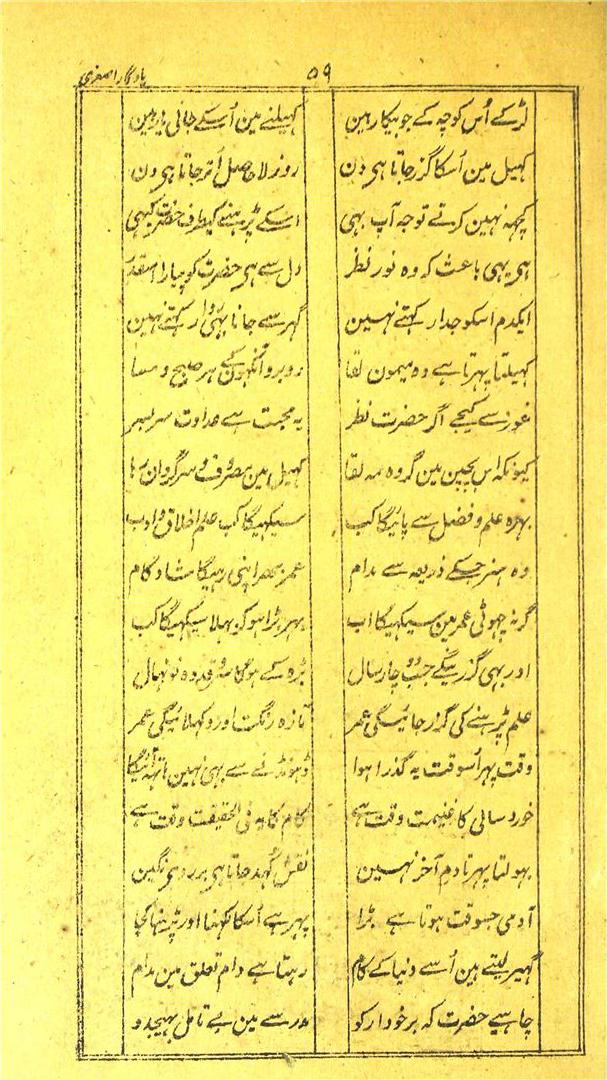 یادگار اصغری
۵۹
لڑکے اُس کوچہ کے جو بیکار ہین کہیلنے مین اُسکے جانی یار ہین
کہیل مین اُسکا گزر جاتا ہی دن روز لاحاصل اُتر جاتا ہی دن
کچہہ نہین کرتے توجہ آپ بہی اسکے پڑہنے کیطرف حضرت کبہی
ہی یہی باعث کہ وہ نور نظر دل سے ہی حضرت کو پیارا اسقدر
ایکدم اسکو جدا رکہتے نہین گہر سے جانا بہی روا رکہتے نہین
کہیلتا پہرتا ہے وہ میمون لقا روبرو آنکہون کے ہر صبح و مسا
غور سے کیجے اگر حضرت نظر یہ محبت ہے عداوت سر بسر
کیونکہ اس بچپن مین گر وہ مہ لقا کہیل مین مصروف و سرگردان رہا
بہرہ علم و فضل سے پائیگا کب سیکہیگا کب علم اخلاق و ادب
وہ ہنر جسکے ذریعہ سے مدام عمر بہر اپنی رہیگا شاد کام
گر نہ چہوٹی عمر مین سیکہیگا اب پہر بڑا ہو کر بہلا سیکہیگا کب
اور بہی گزرینگے جب دو چار سال بڑہ کے ہوگا سرو قد وہ نونہال
علم پڑہنے کی گزر جائیگی عمر تازہ رنگت اور دکہلائیگی عمر
وقت پہر اُسوقت یہ گذرا ہوا ڈہونڈنے سے بہی نہین ہاتہہ آئیگا
خورد سالی کا غنیمت وقت ہے کام کا یہ فی الحقیقت وقت ہے
بہولتا پہر تا دم آخر نہین نقش کُہد جاتا ہی بر روی نگین
آدمی جسوقت ہوتا ہے بڑا پہر ہے اُسکا لکہنا اور پڑہنا کجا
گہیر لیتے ہین اُسے دنیا کے کام رہتا ہے دام تعلق مین مدام
چاہیے حضرت کہ برخوردار کو مدرسے مین بے تامل بہیجدو